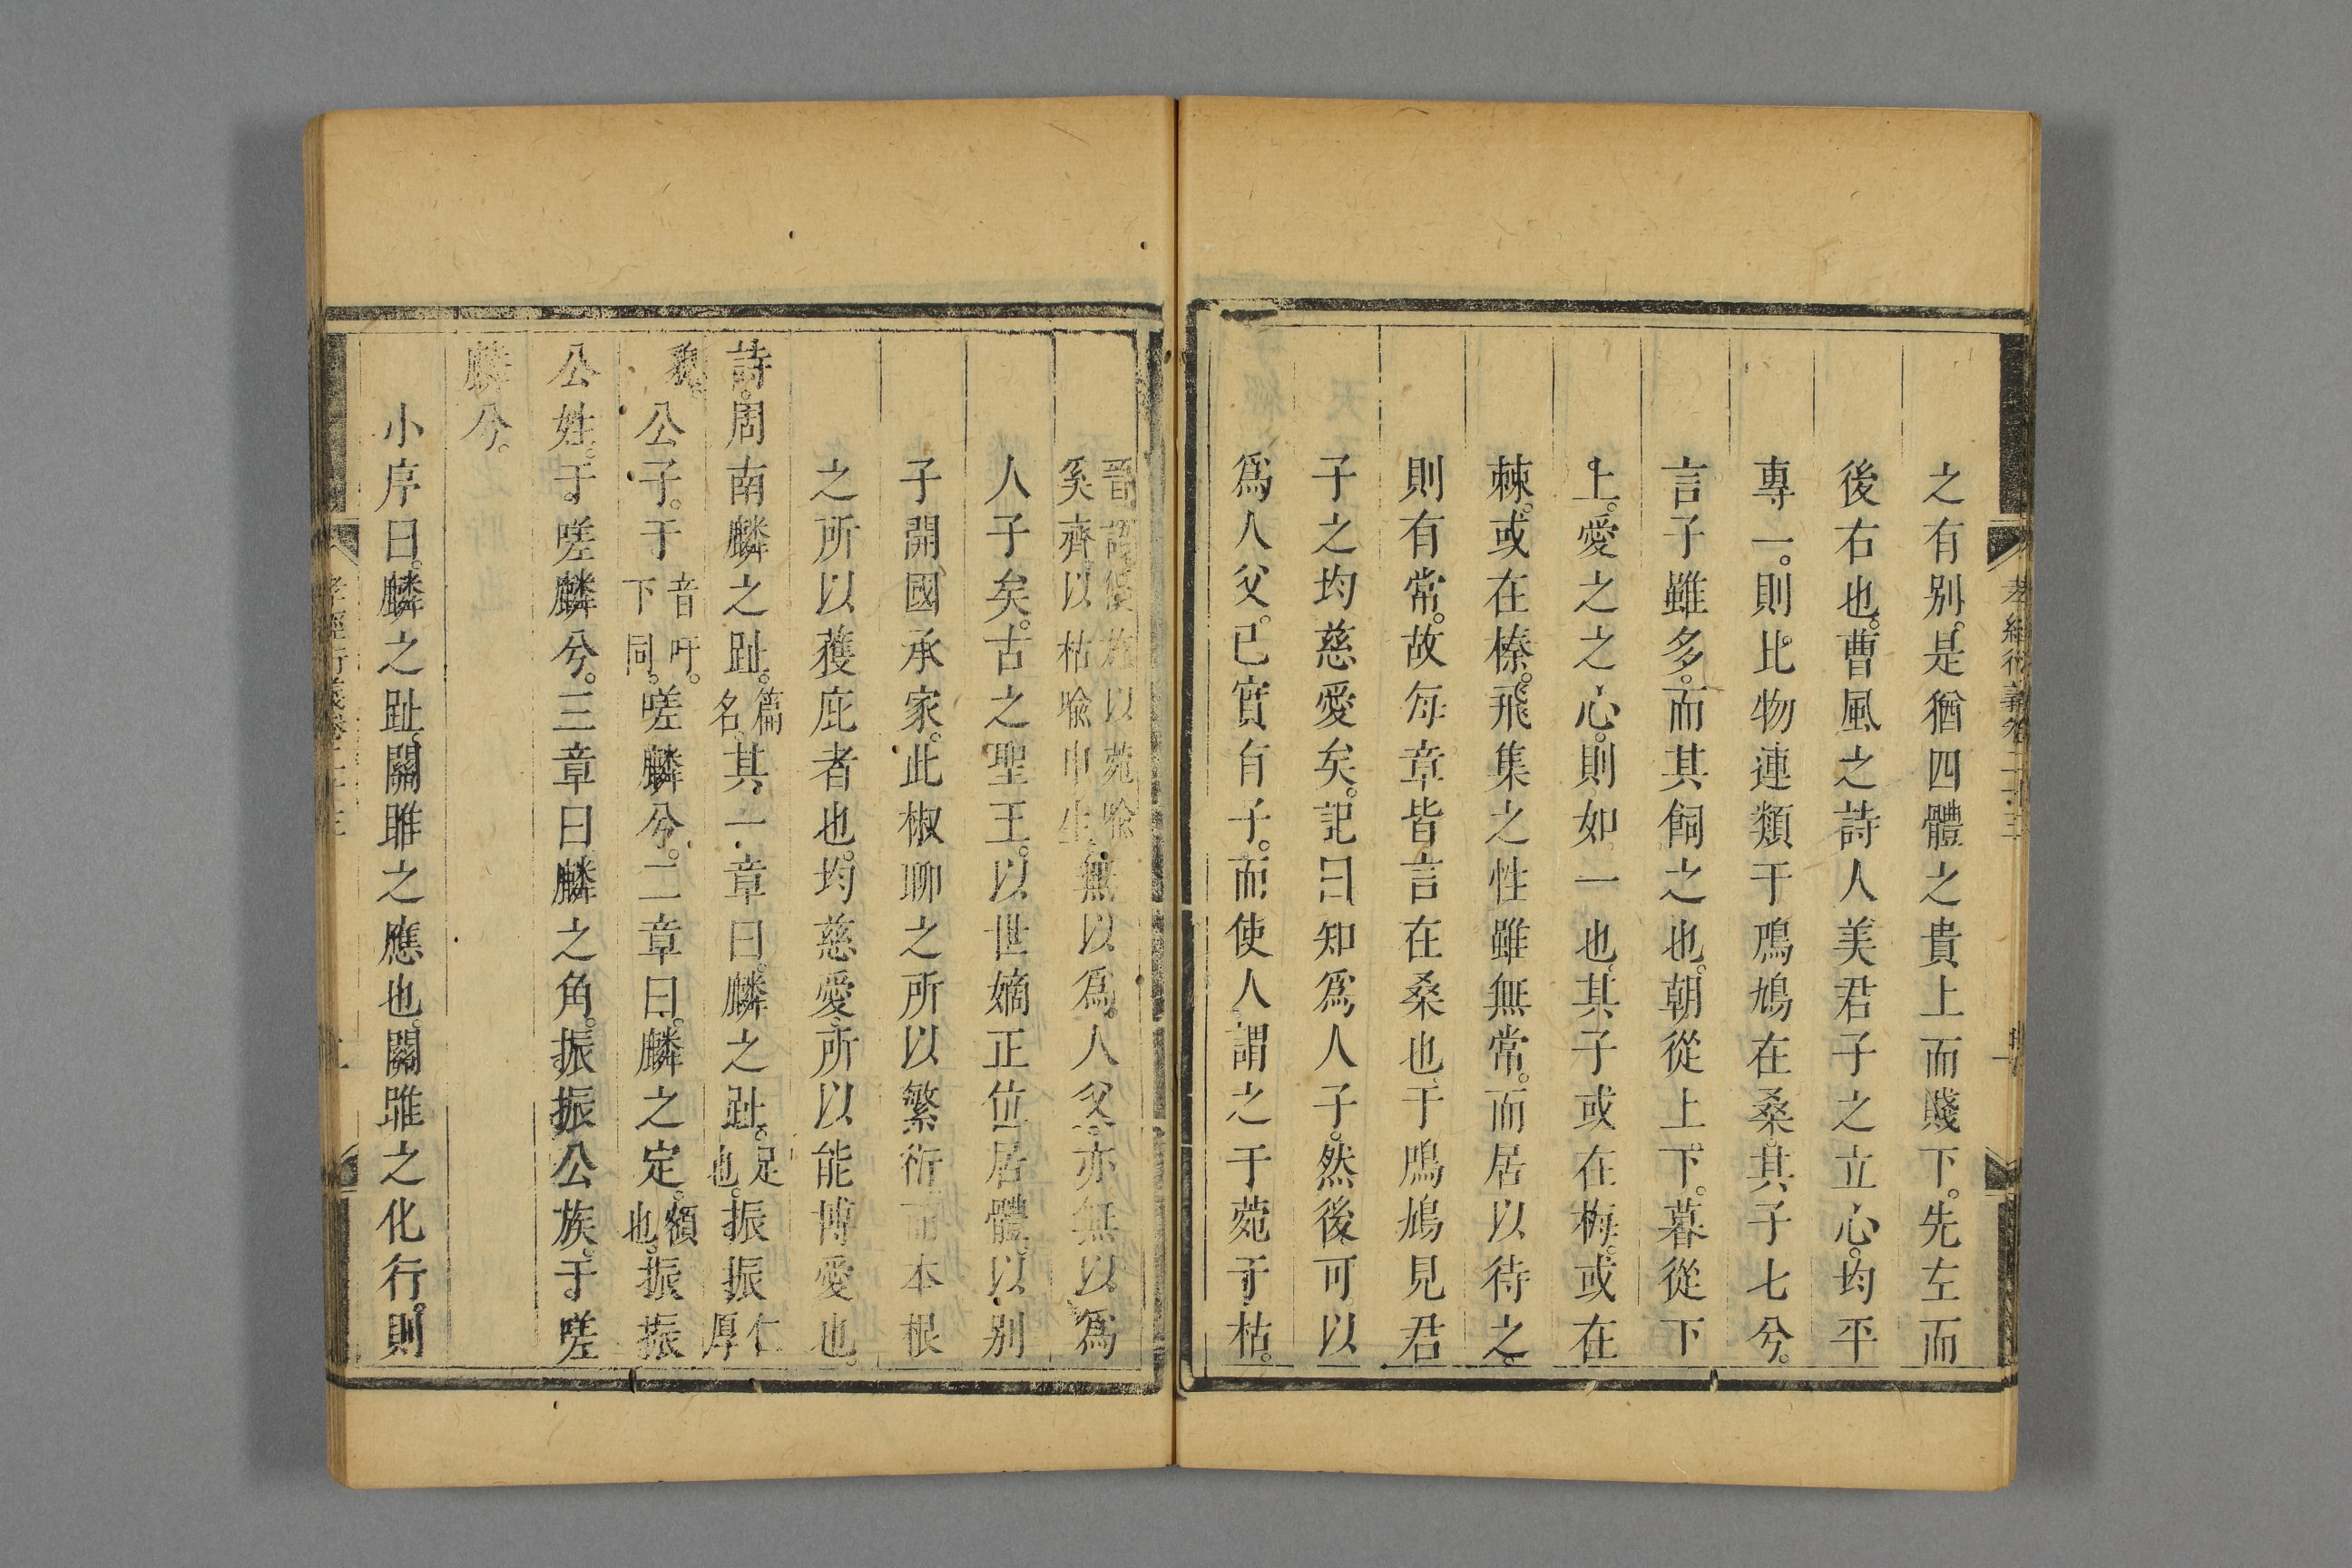 之有别。是猶四體之貴上而賤下。先左而
後右也。曹風之詩人美君子之立心。均平
專一。則比物連類于鳲鳩在桑。其子七兮。
言子雖多。而其飼之也。朝從上下。暮從下
上。愛之之心。則如一也。其子或在梅。或在
棘。或在榛。飛集之性雖無常。而居以待之。
則有常。故每章皆言在桑也。于鳲鳩見君
子之均慈愛矣。記曰知爲人子。然後可以
爲人父。已實有子。而使人謂之于菀于枯。
晉謌優施以菀喻
奚齊以枯喻申生
無以爲人父。亦無以爲
人子矣。古之聖王。以世嫡正位居體。以别
子開國承家。此椒聊之所以繁衍而本根
之所以蓷庇者也。均慈愛。所以能博愛也。
詩。周南麟之趾。篇名其一章曰。麟之趾。足也。振振仁厚
貌。公子。于音吁。下同。嗟麟兮。二章曰。麟之定。額也。振振
公姓。于嗟麟兮。三章曰麟之角。振振公族。于嗟
麟兮。
小序曰。麟之趾。關雎之應也。關雎之化行。則